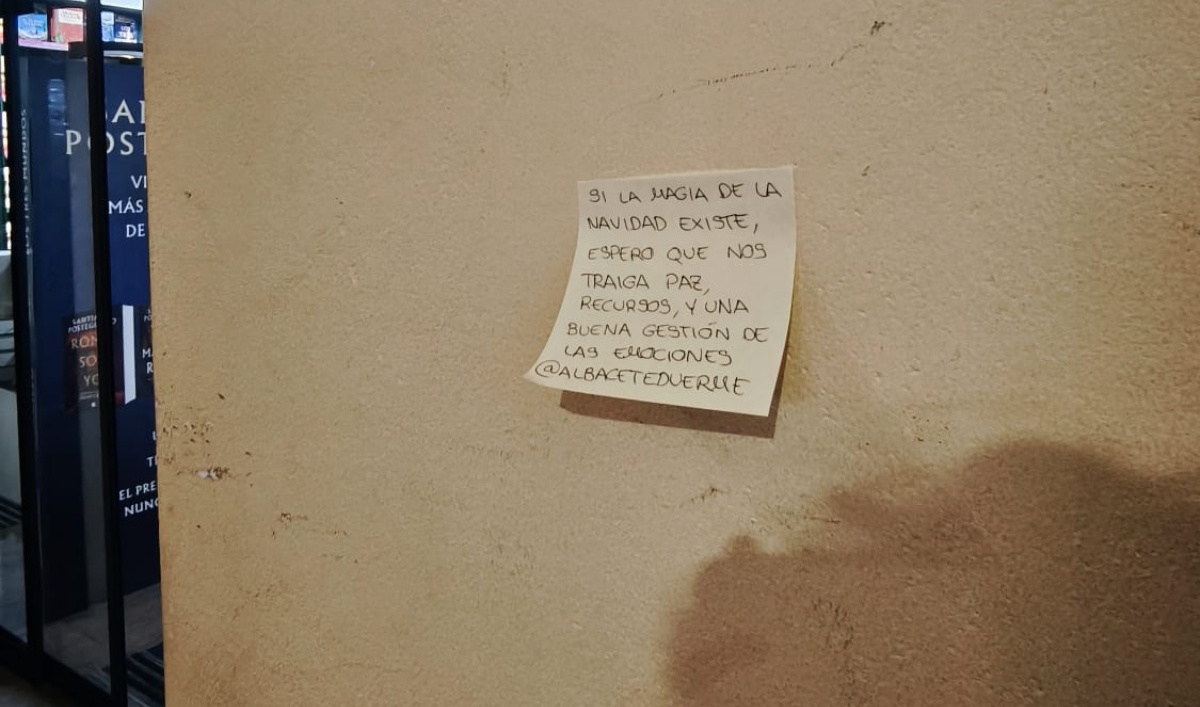 POST
VI
MÁS
DE
LOS TRES MUNDOS
SO
YO
EL PRE
NUNC
SI LA MAGIA DE LA
NAVIDAD EXISTE,
ESPERO QUE NOS
TRAIGA PAZ,
RECURSOS, Y UNA
BUENA GESTIÓN DE
LAS EMOCIONES
@ALBACETEDUERME